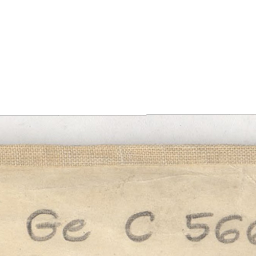 Ge C 566